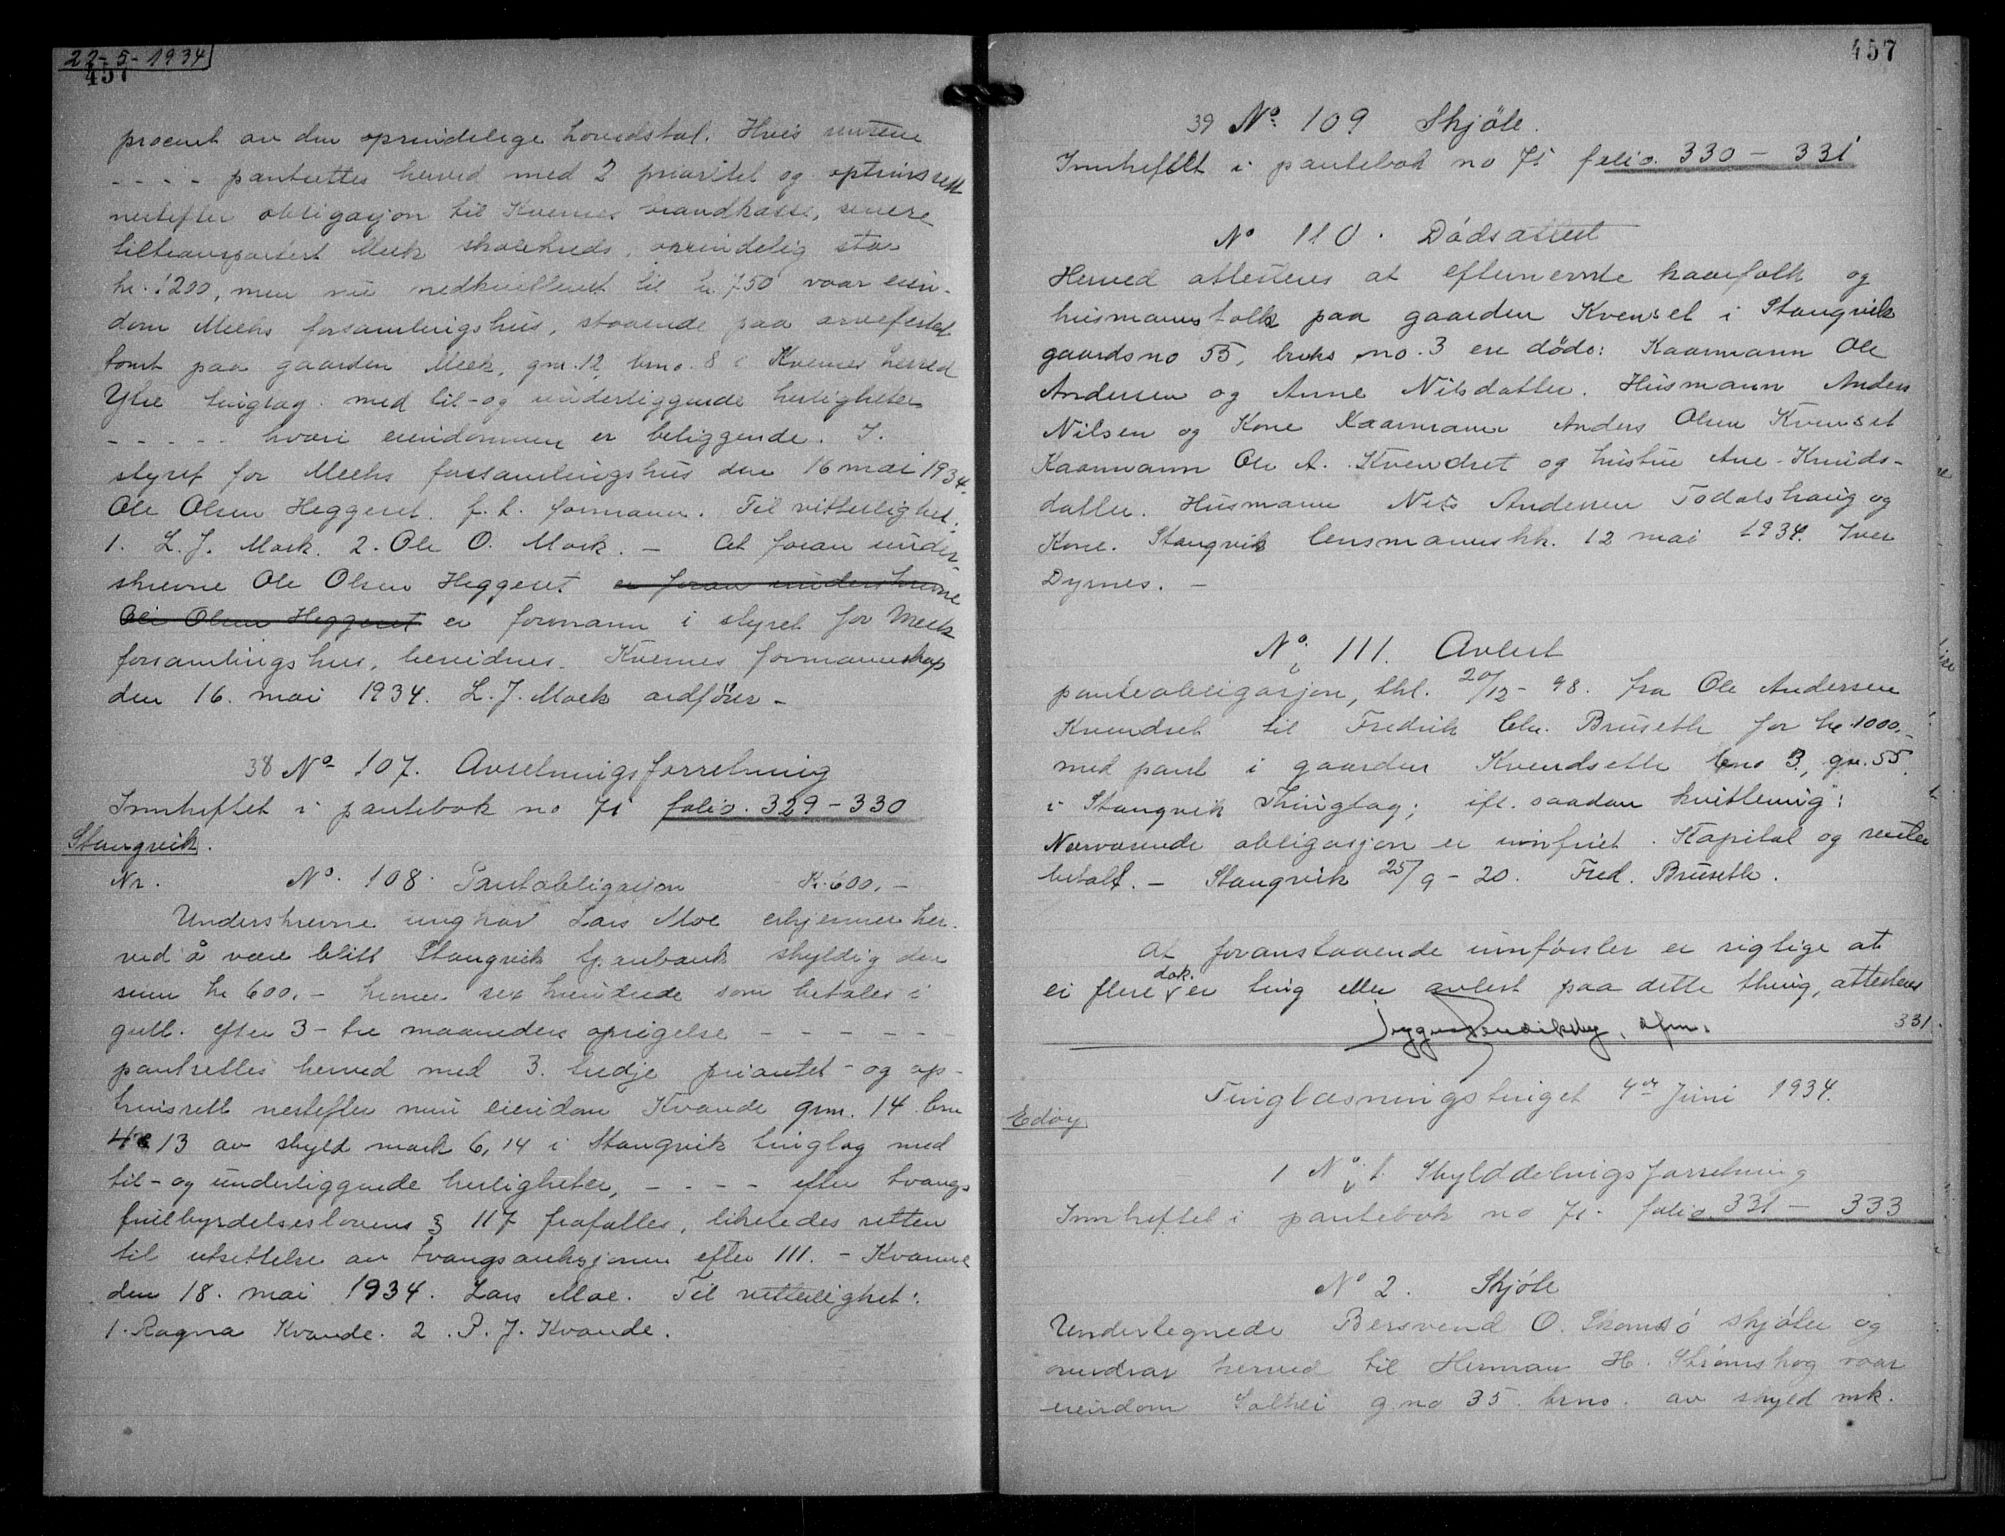 22-5-1934
457
procent av den oprindelige hovedstol. Hvis rentene
- - - - pantsettes herved med 2 prioritet og optrinsrett
nestefter obligasjon til Kvernes brandkasse, senere
tiltransportert Meek skolekreds, oprindelig stor
kr. 1200, men nu nedkvitteret til kr. 750 vaar eien-
dom Meeks forsamlingshus, staaende paa arvefestet
tomt paa gaarden Meek, gnr. 12, brno. 8 i Kvernes herred
Ytre tinglag med til- og underliggende herligheter
- - - - - hvori eiendommen er beliggende. I
styret for Meeks forsamlingshus den 16 mai 1934.
Ole Olsen Heggeset f. t. formann. Til vitterlighet:
1. L. J. Moek. 2. Ole O. Moek. - At foran under-
skrevne Ole Olsen Heggeset er foran underskrevne
Ole Olsen Heggeset er formann i styret for Meek
forsamlingshus, bevidnes. Kvernes formannskap
den 16. mai 1934. L. J. Moek ordfører -
38 No 107. Avsetningsforretning
Innheftet i pantebok no 71 folio. 329-330
Stangvik.
Nr. No. 108. Pantobligasjon Kr. 600.-
Underskrevne ungkar Lars Moe erkjenner her-
ved å være blitt Stangvik Sparebank skyldig den
sum kr 600.- kroner sex hundrede som betales i
gull. efter 3- tre maaneders opsigelse - - - - - -
pantsettes herved med 3. tredje prioritet- og op-
trinsrett nestefter min eiendom Kvande gnr. 14 bnr
13 av skyld mark 6,14 i Stangvik tinglag med
til- og underliggende herligheter, - - - - efter tvangs
fullbyrdelseslovens § 117 frafalles, likeledes retten
til utsettelse av tvangsauksjonen efter 111. - Kvanne
den 18. mai 1934. Lars Moe. Til vitterlighet:
1. Ragna Kvande. 2. P. J. Kvande.
457
39 No 109 Skjöte.
Innheftet i pantebok no 71 folio. 330-331
No 110. Dødsattest
Herved attesteres at efternevnte kaarfolk og
husmannsfolk paa gaarden Kvenset i Stangvik
gaardsno 55, bruks no. 3 ere døde: Kaarmann Ole
Andersen og Anne Nilsdatter. Husmann Anders
Nilsen og Kone Kaarmann Anders Olsen Kvenset
Kaarmann Ole A. Kvendset og hustru Ane Knuds-
datter. Husmann Nils Andersen Todalshaug og
Kone. Stangvik lensmannskk. 12 mai 1934. Iver
Dyrnes. -
No. 111. Avlest
panteobligasjon, thl. 20/12-98. fra Ole Andersen
Kvendset til Fredrik Chr. Bruseth for kr 1000,-
med pant i gaarden Kvendseth bno 3, gn. 55.
i Stangvik Thinglag; ifl. saadan kvittering:
Nærværende obligasjon er innfriet. Kapital og renter
betalt. - Stangvik 25/9-20. Fred. Bruseth.
At foranstaaende innførsler er rigtige at
ei flere dok. er ting eller avlest paa dette thing, attesteres
331.
Tinglæsningstinget 4de Juni 1934.
Edøy
1 No. 1. Skylddelingsforretning
Innheftet i pantebok no 71. folio 331 - 333
No 2. Skjøte
Undertegnede Bersvend O. Skomsø skjøter og
overdrar herved til Herman H. Strømskog vaar
eiendom Solhei g.no 35 brno. av skyld mk.